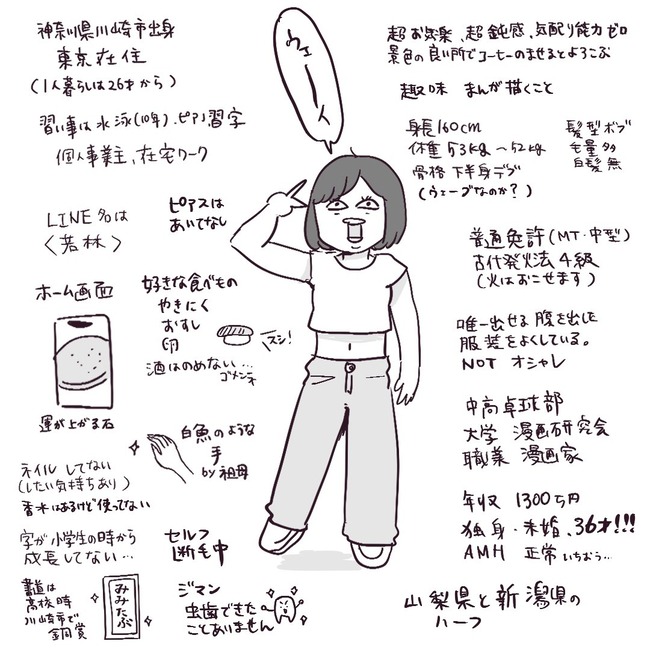 神奈川県川崎市出身
東京在住
(1人暮らしは26才から)
習い事は水泳(10年)、ピアノ習字
個人事業主、在宅ワーク
LINE名は
〈若林〉
ピアスは
あいてなし
ホーム画面
運が上がる石
好きな食べもの
やきにく
おすし
卵
スシ!
酒はのめない…
ゴメンネ
白魚のような
手
by 祖母
ネイルしてない
(したい気持ちあり)
香水はあるけど使ってない
字が小学生の時から
成長してない…
書道は
高校時
川崎市で
銅賞
みみたぶ
セルフ
断毛中
ジマン
虫歯できた
ことありません
ウェーイ
超お気楽、超鈍感、気配り能力ゼロ
景色の良い所でコーヒーのませるとよろこぶ
趣味 まんが描くこと
身長160cm
体重53kg〜52kg
骨格下半身デブ
(ウェーブなのか?)
髪型ボブ
毛量多
白髪無
普通免許(MT・中型)
古代発火法4級
(火はおこせます)
唯一出せる腹を出した
服装をよくしている。
NOT オシャレ
中高卓球部
大学 漫画研究会
職業 漫画家
年収 1300万円
独身・未婚、36才!!!
AMH 正常いちおう…
山梨県と新潟県の
ハーフ